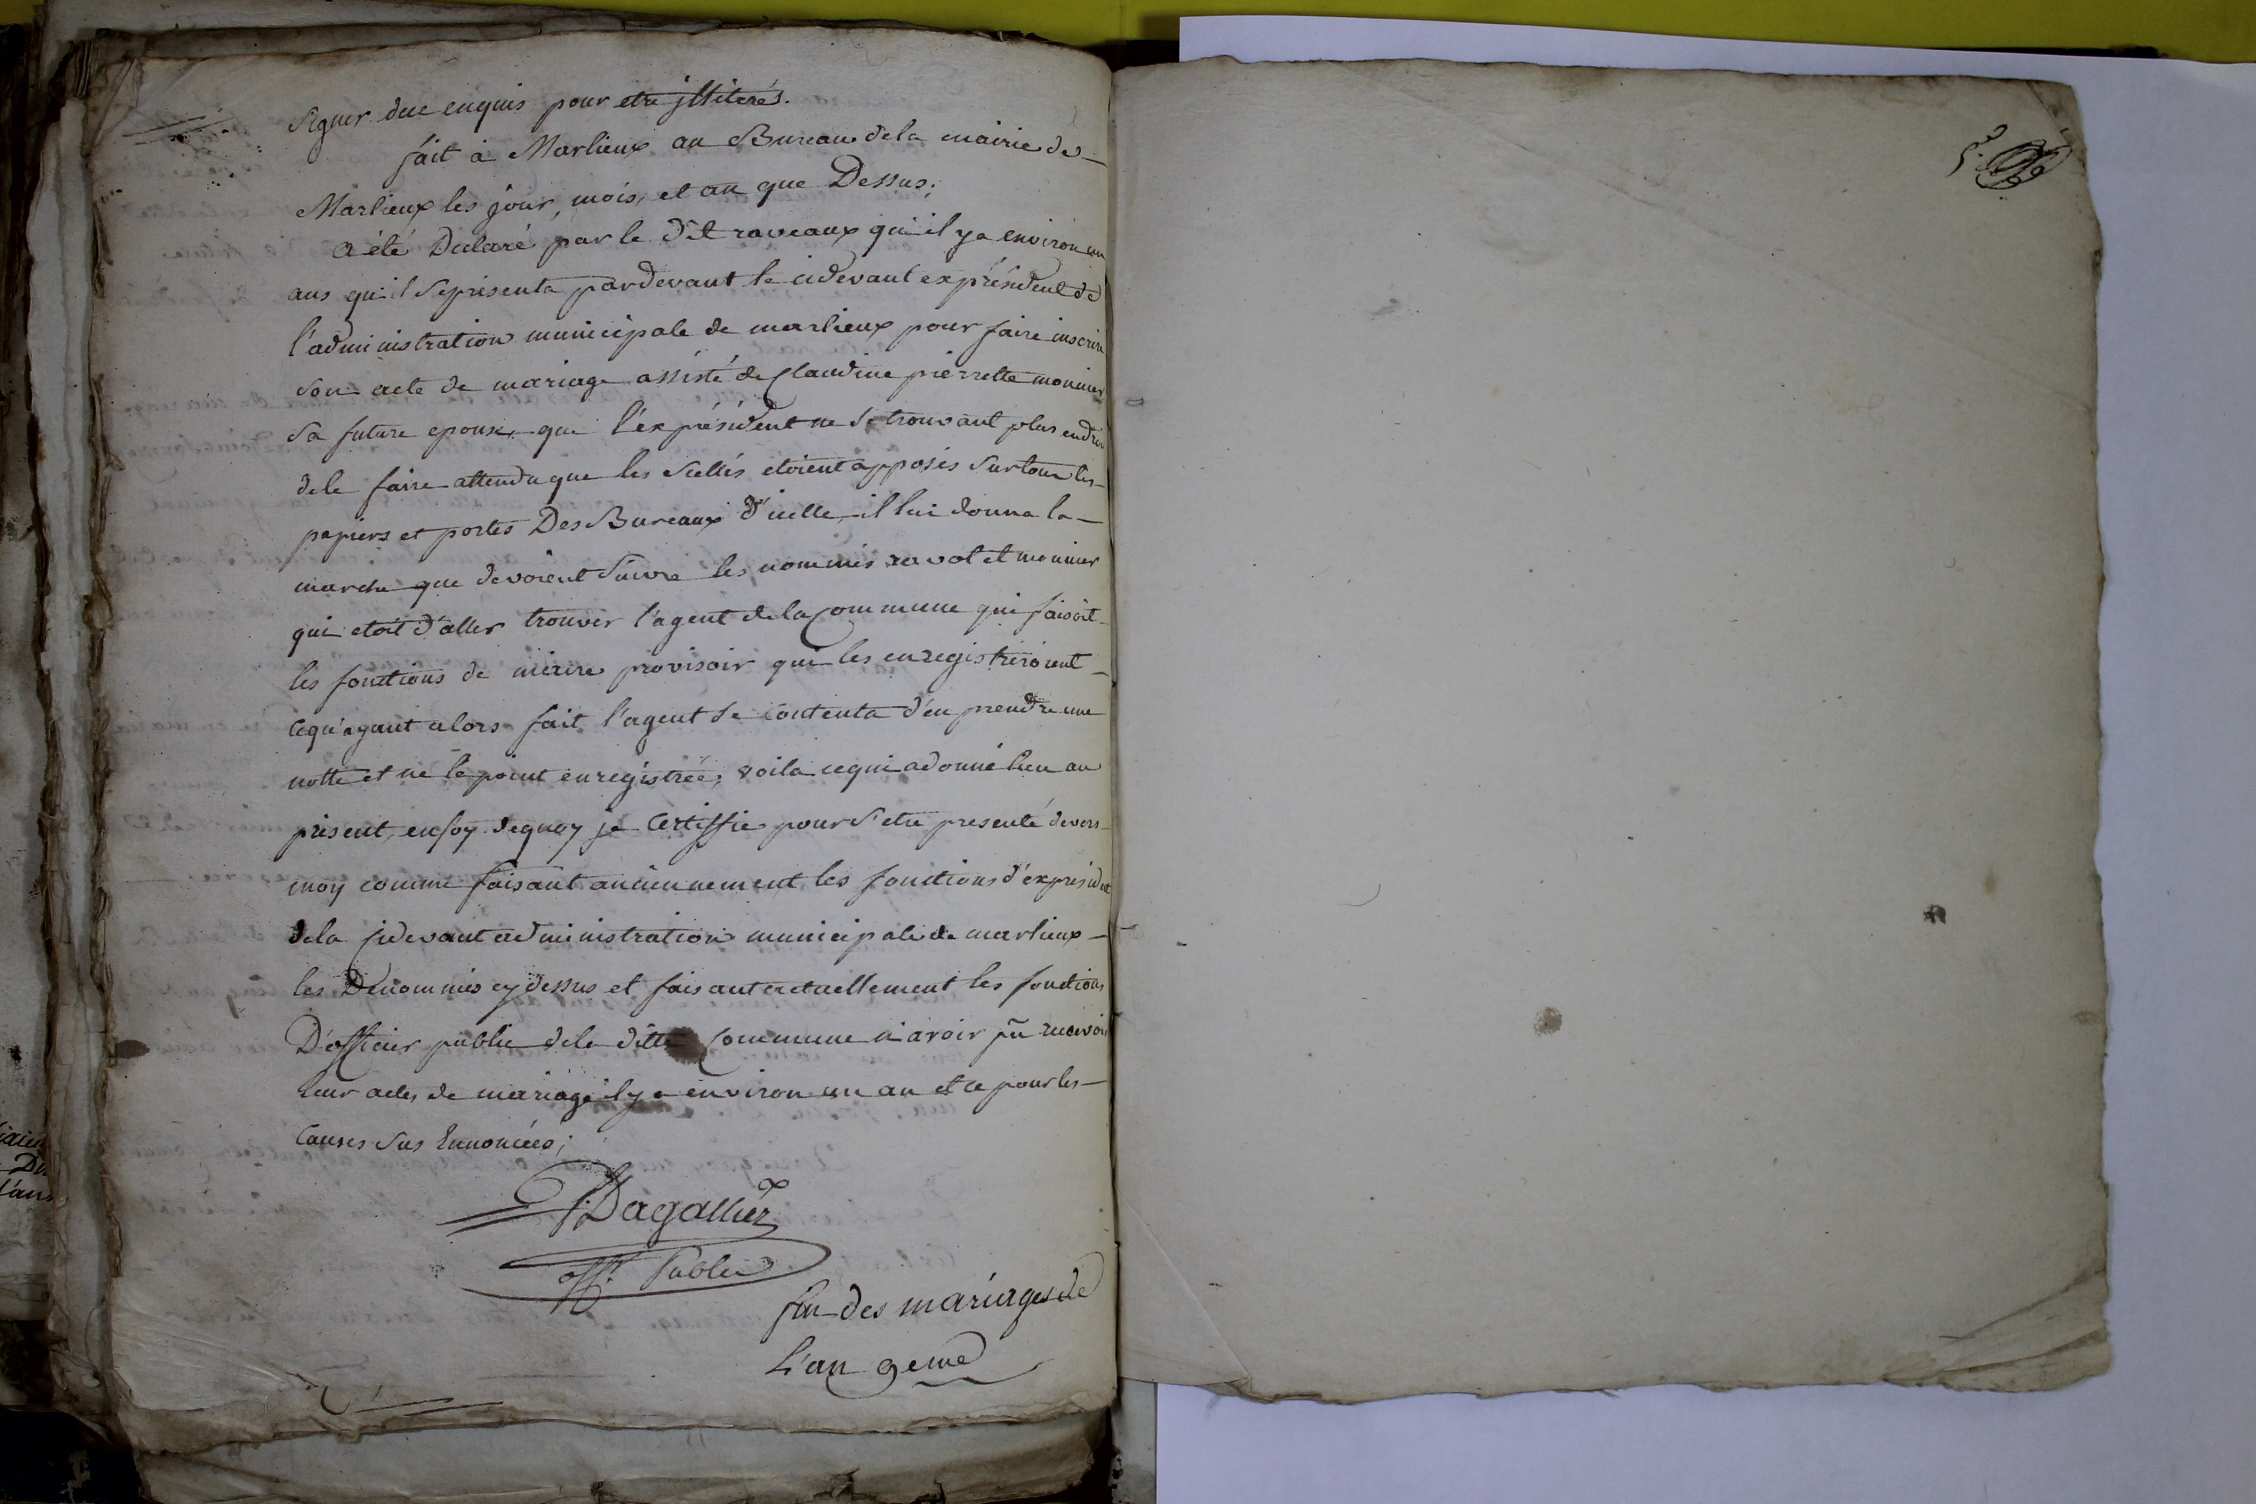 signer due enquis pour etre jlliterés.
fait à Marlieux au Bureau de la mairie de
Marlieux les jour, mois, et an que Dessus;
a été Déclaré par le dit raveaux qu'il y a environ un
ans qu'il se présenta pardevant le cidevant exprésident de
l'administration municipale de marlieux pour faire inscrire
son acte de mariage assisté de Claudine pierrette monnier
sa future epouse, que l'éx président ne se trouvant plus endroit
de le faire attendu que les scellés etoient apposés sur tous les
papiers et portes Des Bureaux d'icelle, il lui donna la
marche que devoient suivre les nommés ravot et monnier
qui etoit d'aller trouver l'agent de la Commune qui faisoit
les fonctions de maire provisoir qui les enregistreroient
cequ'ayant alors fait l'agent se contenta d'en prendre une
notte et ne le point enregistrée, voila cequi a donné lieu au
présent, enfoy dequoy je Certiffie pour s'etre presenté devers
moy comme faisant anciennement les fonctions d'éxprésident
dela Cidevant administration municipale de marlieux
les Dénommés cy dessus et faisant actuellement les fonctions
D'officier public dela ditte Commune n'avoir pû recevoir
leur actes de mariage il y a environ un an et ce pour les
Causes sus Ennoncées;
Dagallier
offr. Public
fin des mariages de
L'an 9eme